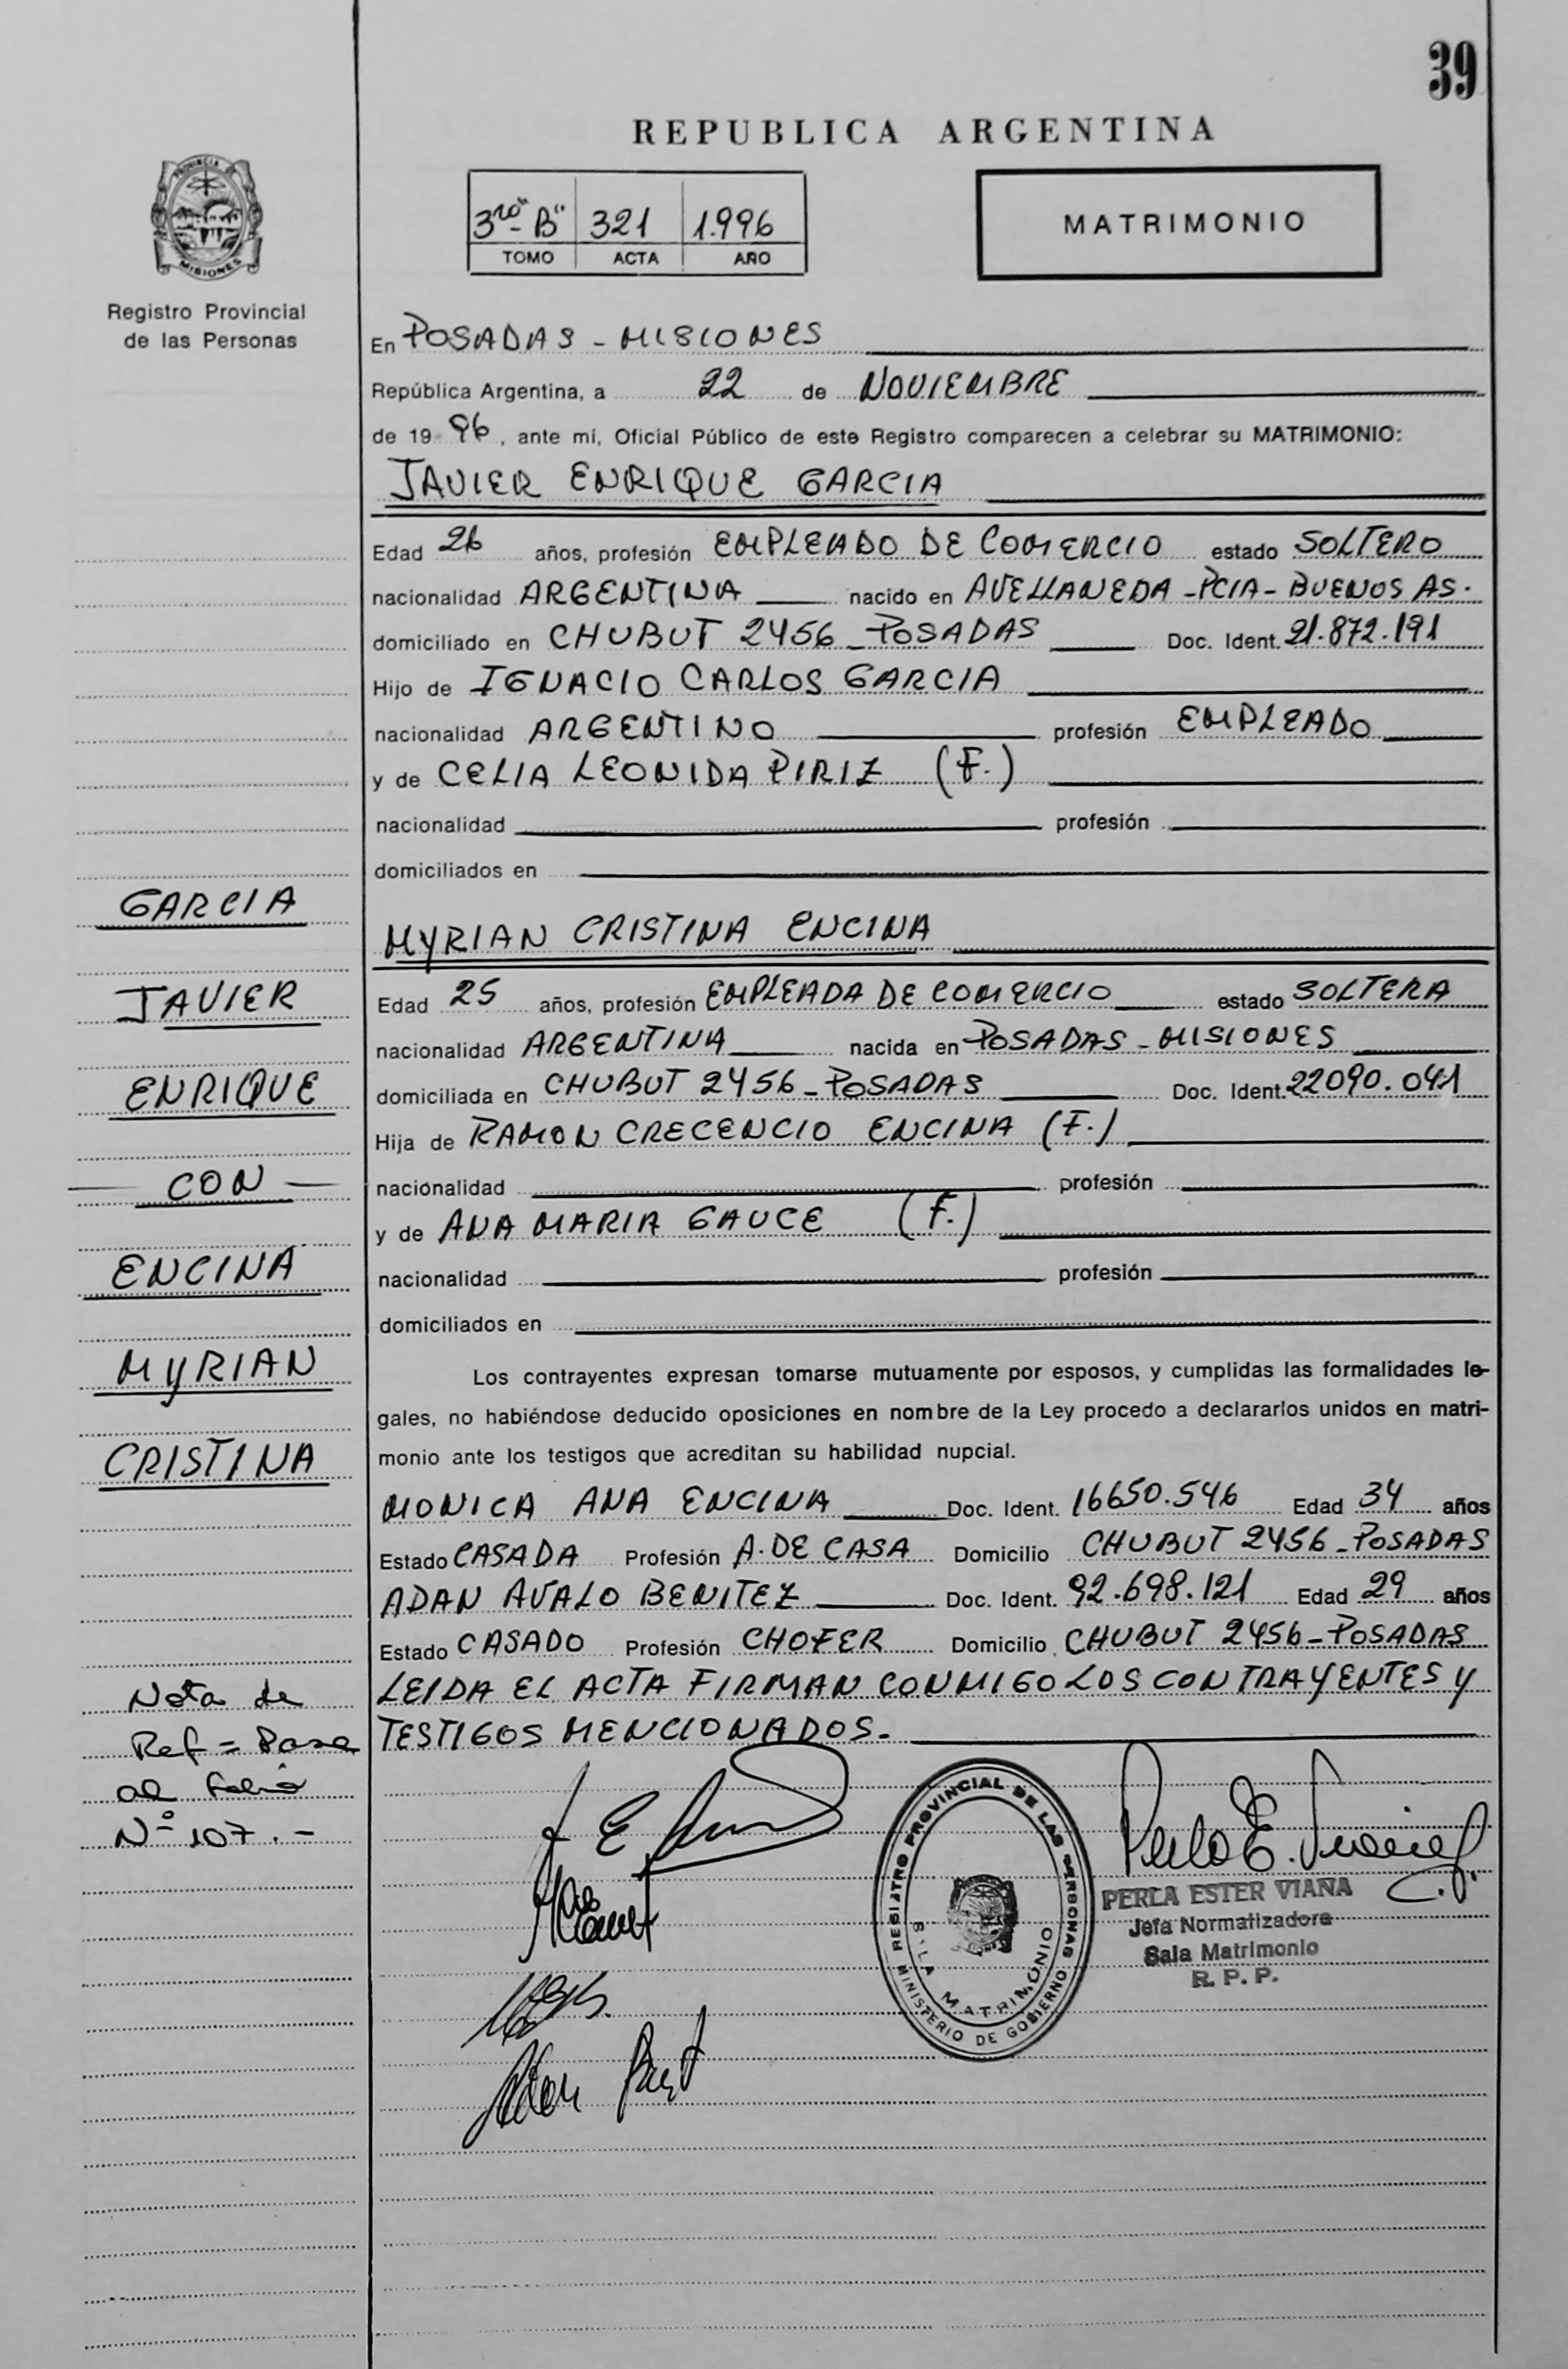 39
REPUBLICA ARGENTINA
PROVINCIA
MISIONES
Registro Provincial
de las Personas
3ro "B" 321 1.996
TOMO ACTA AÑO
MATRIMONIO
En POSADAS - MISIONES
República Argentina, a 22 de NOVIEMBRE
de 1996, ante mí, Oficial Público de este Registro comparecen a celebrar su MATRIMONIO:
JAVIER ENRIQUE GARCIA
Edad 26 años, profesión EMPLEADO DE COMERCIO estado SOLTERO
nacionalidad ARGENTINA nacido en AVELLANEDA - PCIA - BUENOS AS.
domiciliado en CHUBUT 2456 - POSADAS Doc. Ident. 21.872.191
Hijo de IGNACIO CARLOS GARCIA
nacionalidad ARGENTINO profesión EMPLEADO
y de CELIA LEONIDA PIRIZ (F.)
nacionalidad profesión
domiciliados en
MYRIAN CRISTINA ENCINA
Edad 25 años, profesión EMPLEADA DE COMERCIO estado SOLTERA
nacionalidad ARGENTINA nacida en POSADAS - MISIONES
domiciliada en CHUBUT 2456 - POSADAS Doc. Ident. 22090.041
Hija de RAMON CRECENCIO ENCINA (F.)
nacionalidad profesión
y de ANA MARIA GAUCE (F.)
nacionalidad profesión
domiciliados en
Los contrayentes expresan tomarse mutuamente por esposos, y cumplidas las formalidades le-
gales, no habiéndose deducido oposiciones en nombre de la Ley procedo a declararlos unidos en matri-
monio ante los testigos que acreditan su habilidad nupcial.
MONICA ANA ENCINA Doc. Ident. 16650.546 Edad 34 años
Estado CASADA Profesión A. DE CASA Domicilio CHUBUT 2456 - POSADAS
ADAN AVALO BENITEZ Doc. Ident. 92.698.121 Edad 29 años
Estado CASADO Profesión CHOFER Domicilio CHUBUT 2456 - POSADAS
LEIDA EL ACTA FIRMAN CONMIGO LOS CONTRAYENTES Y
TESTIGOS MENCIONADOS.-
GARCIA
JAVIER
ENRIQUE
- CON -
ENCINA
MYRIAN
CRISTINA
Nota de
Ref = Pasa
al folio
Nº 107.-
REGISTRO PROVINCIAL DE LAS PERSONAS
MINISTERIO DE GOBIERNO
SALA MATRIMONIO
PERLA ESTER VIANA
Jefa Normatizadora
Sala Matrimonio
R. P. P.